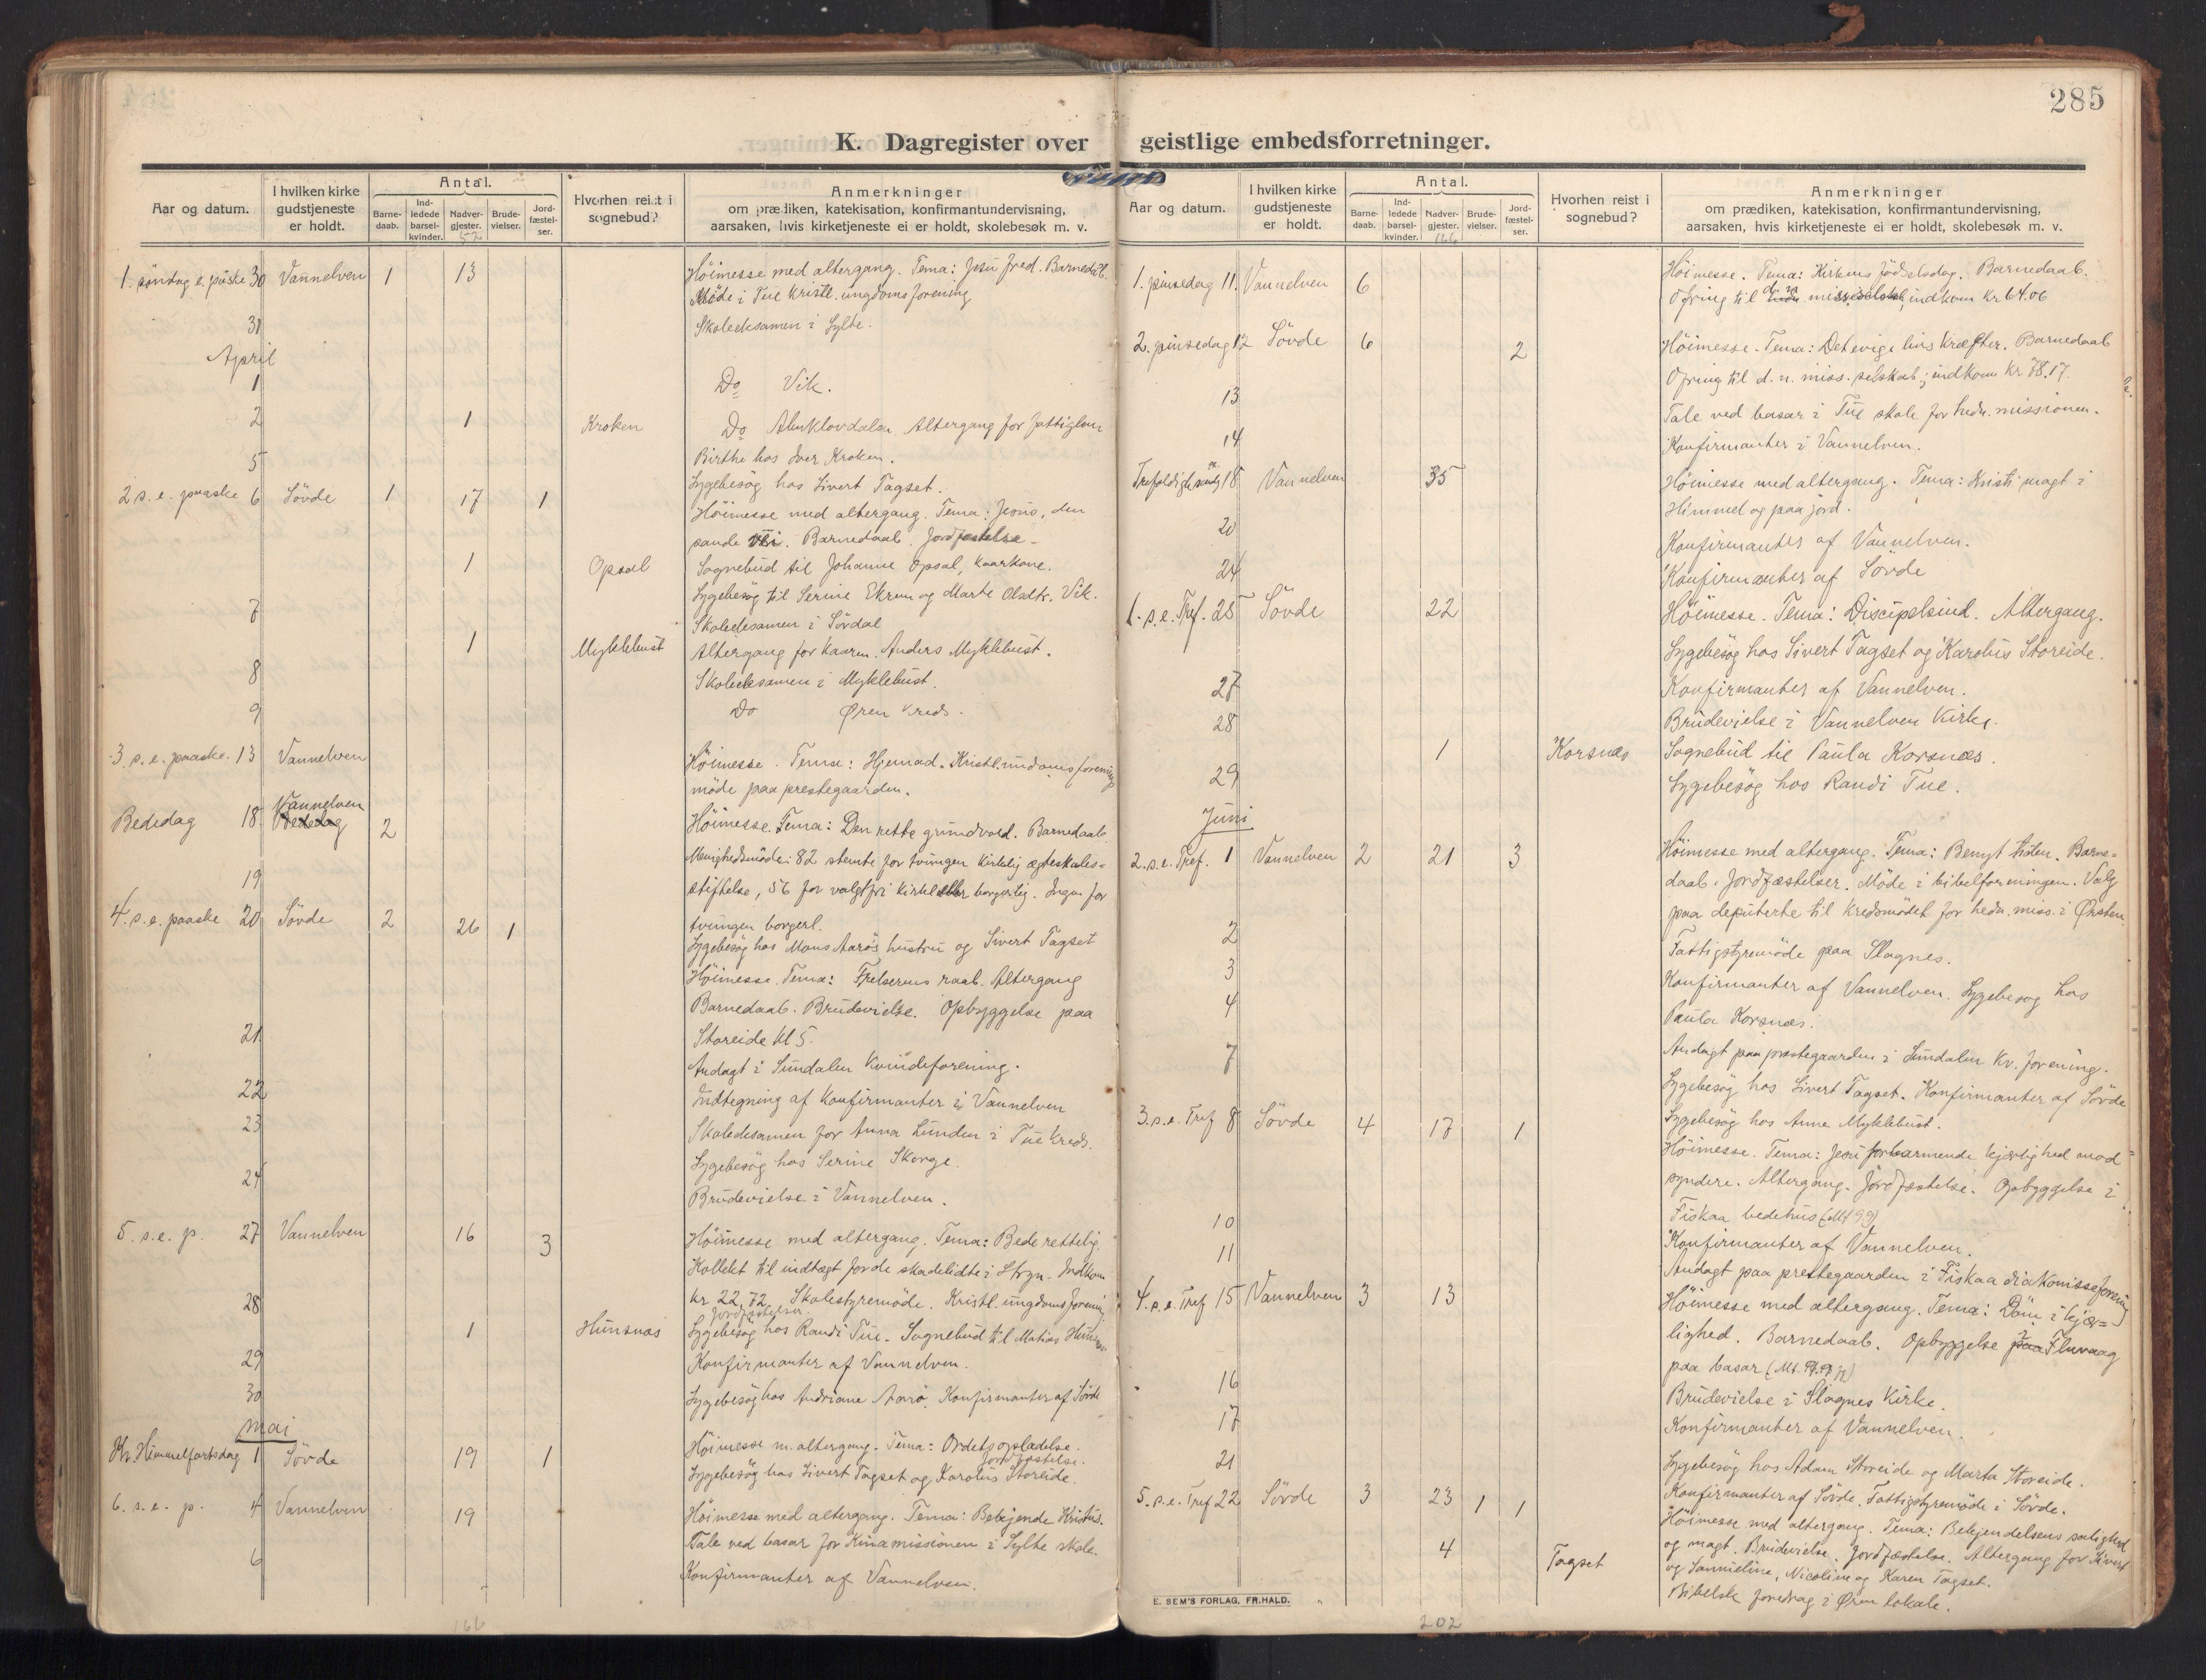 285
K. Dagregister over geistlige embedsforretninger.
Aar og datum.
I hvilken kirke gudstjeneste er holdt.
Antal.
Barne-daab.
Ind-ledede barsel-kvinder.
Nadver-gjester.
52
Brude-vielser.
Jord-fæstel-ser.
Hvorhen reist i sognebud?
Anmerkninger
om prædiken, katekisation, konfirmantundervisning,
aarsaken, hvis kirketjeneste ei er holdt, skolebesøk m. v.
1. søndag e. påske 30 Vannelven 1 13 Höimesse med altergang. Tema: Jesu fred. Barnedåb.
Möde i Tue kristl. ungdomsforening
31 Skoleeksamen i Sylte.
April
1 Do Vik.
2 1 Kroken Do Almklovdalen Altergang for fattiglem
Birthe hos Iver Kroken.
5 Sygebesög hos Sivert Tagset.
2 s. e. paaske 6 Sövde 1 17 1 Höimesse med altergang. Tema: Jesus, den
sande vei. Barnedaab. Jordfæstelse.
1 Opsal Sognebud til Johanne Opsal, kaarkone.
Sygebesög til Serine Ekrem og Marte Olsdtr. Vik.
7 Skoleeksamen i Sördal
1 Myklebust Altergang for kaarm. Anders Myklebust.
8 Skoleeksamen i Myklebust.
9 Do Øren kreds.
3 s. e. paaske. 13 Vannelven Höimesse. Tema: Hjemad. Kristl. undomsforenings
möde paa prestegaarden.
Bededag 18 Vannelven Bededag 2 Höimesse. Tema: Den rette grundvold. Barnedaab
Menighedsmöde: 82 stemte for tvungen kirkelig ægteskabs-
stiftelse, 56 for valgfri kirkel eller borgerlig. Ingen for
tvungen borgerl.
19 Sygebesög hos Mons Aarös hustru og Sivert Tagset
4. s. e. paaske 20 Sövde 2 26 1 Höimesse. Tema: Frelserens raab. Altergang
Barnedaab. Brudevielse. Opbyggelse paa
Storeide kl 5.
21. Andagt i Sundalen Kvindeforening.
22 Indtegning af konfirmanter i Vannelven
23 Skoleeksamen for Anna Lunden i Tue kreds.
Sygebesög hos Serine Skorge.
24 Brudevielse i Vannelven.
5. s. e. p. 27 Vannelven 16 3 Höimesse med altergang. Tema: Bede rettelig.
Kollekt til indtægt for de skadelidte i Stryn. Indkom
kr 22,72. Skolestyremöde. Kristl. ungdomsforening
Jordfæstelser.
28 1 Hunsnæs Sygebesög hos Randi Tue. Sognebud til Matias Hunsnæs
29 Konfirmanter af Vannelven.
30 Sygebesög hos Andriane Aarö. Konfirmanter af Sövde
Mai
Kr. Himmelfartsdag 1 Sövde 19 1 Höimesse m. altergang. Tema: Ordets opladelse.
Jordfæstelse.
Sygebesög hos Sivert Tagset og Karolus Storeide.
6. s. e. p. 4 Vannelven 19 Höimesse med altergang. Tema: Bekjende Kristus.
Tale ved basar for Kinamissionen i Sylte skole.
6 Konfirmanter af Vannelven.
166
Aar og datum.
I hvilken kirke gudstjeneste er holdt.
Antal.
Barne-daab.
Ind-ledede barsel-kvinder.
Nadver-gjester.
166
Brude-vielser.
Jord-fæstel-ser.
Hvorhen reist i sognebud?
Anmerkninger
om prædiken, katekisation, konfirmantundervisning,
aarsaken, hvis kirketjeneste ei er holdt, skolebesøk m. v.
1. pinsedag 11. Vannelven 6 Höimesse. Tema: Kirkens födselsdag. Barnedaab.
Ofring til d. n. misj.selskab, indkom kr 64.06
2. pinsedag 12 Sövde 6 2 Höimesse. Tema: Det evige livs kræfter. Barnedaab
Ofring til d. n. miss. selskab; indkom kr 78.17.
13 Tale ved basar i Tue skole for hedn. missionen.
14 Konfirmanter i Vannelven.
Trefoldigh. søndg 18 Vannelven 35 Höimesse med altergang. Tema: Kristi magt i
Himmel og paa jord.
20 Konfirmanter af Vannelven.
24 Konfirmanter af Sövde
1. s. e. Tref. 25 Sövde 22 Höimesse. Tema: Discipelsind. Altergang.
Sygebesög hos Sivert Tagset og Karolus Storeide.
27 Konfirmanter af Vannelven.
28 Brudevielse i Vannelven kirke.
1 Korsnæs Sognebud til Paula Korsnæs.
29 Sygebesög hos Randi Tue.
Juni
2. s. e. Tref. 1 Vannelven 2 21 3 Höimesse med altergang. Tema: Benyt tiden. Barne-
daab. Jordfæstelser. Möde i bibelforeningen. Valg
paa deputerte til kredsmödet for hedn. miss. i Ørsten
2 Fattigstyremöde paa Slagnes.
3 Konfirmanter af Vannelven. Sygebesög hos
4 Paula Korsnæs.
Andagt paa præstegaarden i Sundalen kv. forening.
7 Sygebesög hos Sivert Tagset. Konfirmanter af Sövde
Sygebesög hos Anne Myklebust.
3. s. e. Tref 8 Sövde 4 17 1 Höimesse. Tema: Jesu forbarmende kjærlighed mod
syndere. Altergang. Jordfæstelse. Opbyggelse i
Fiskaa bedehus
10 Konfirmanter af Vannelven.
11 Andagt paa prestegaarden i Fiskaa diakonisseforening
4. s. e. Tref 15 Vannelven 3 13 Höimesse med altergang. Tema: Döm i kjær-
lighed. Barnedaab. Opbyggelse i Fluvaag
paa basar
16 Brudevielse i Slagnes Kirke.
17 Konfirmanter af Vannelven.
21 Sygebesög hos Adam Storeide og Marta Storeide.
Konfirmanter af Sövde. Fattigstyremöde i Sövde.
5. s. e. Tref 22 Sövde 3 23 1 1 Höimesse med altergang. Tema: Bekjendelsens salighed
og magt. Brudevielse. Jordfæstelse. Altergang for Sivert
4 Tagset og Sannieline, Nicoline og Karen Tagset.
Bibelsk foredrag i Øren lokale.
E. SEM'S FORLAG, FR.HALD.
202